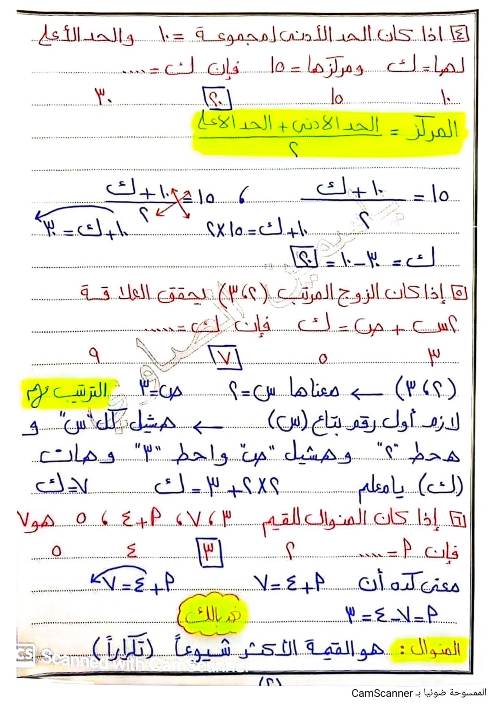 ٤ إذا كان الحد الأدنى لمجموعة = ١٠ والحد الأعلى
لها = ك ومركزها = ١٥ فإن ك = ....
١٠ ١٥ ٢٠ ٣٠
المركز = الحد الأدنى + الحد الأعلى / ٢
١٥ = ١٠ + ك / ٢ ، ١٥ = ١٠ + ك / ٢
١٠ + ك = ١٥ × ٢ ١٠ + ك = ٣٠
ك = ٣٠ - ١٠ = ٢٠
٥ إذا كان الزوج المرتب (٢، ٣) يحقق العلاقة
٢س + ص = ك فإن ك = .....
٣ ٥ ٧ ٩
(٢، ٣) ← معناها س = ٢ ص = ٣ الترتيب مهم
لازم أول رقم بتاع (س) ← هشيل كل "س" و
هحط "٢" وهشيل "ص" واحط "٣" وهات
(ك) يا معلم ٢ × ٢ + ٣ = ك ٧ = ك
٦ إذا كان المنوال القيم ٣، ٧، ٤+٩، ٥ هو ٧
فإن ٩ = .... ٢ ٣ ٤ ٥
معنى كده أن ٤+٩ = ٧ ٤+٩ = ٧
٩ = ٧ - ٤ = ٣
خد بالك
المنوال : هو القيمة الأكثر شيوعاً (تكراراً)
CS Scanned with CamScanner
(٢)
الممسوحة ضوئيا بـ CamScanner